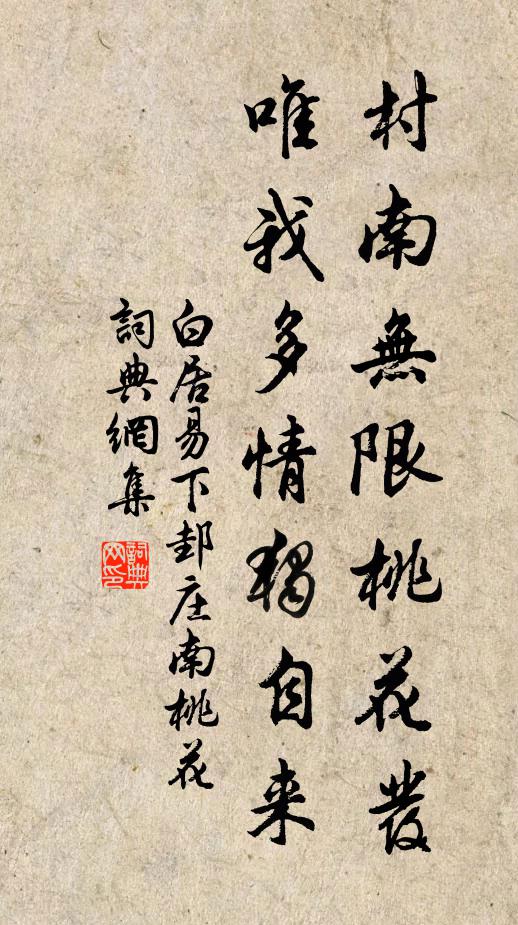 村南無限桃花發
唯我多情獨自来
白居易下邽庄南桃花
詞典網集
詞典網印